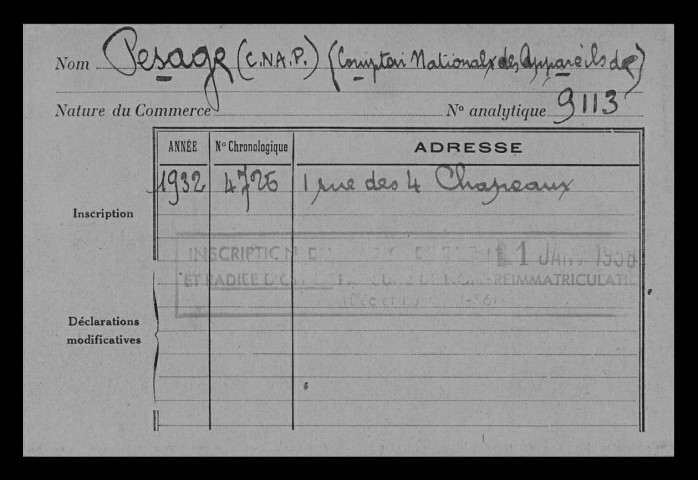 Nom Pesage (C.N.A.P.) (Comptoir National des Appareils de)
Nature du Commerce
N° analytique 9113
ANNÉE N° Chronologique ADRESSE
Inscription 1932 4726 1 rue des 4 Chapeaux
INSCRIPTION 1 JANV
ET RADIEE REIMMATRICULATION
Déclarations
modificatives